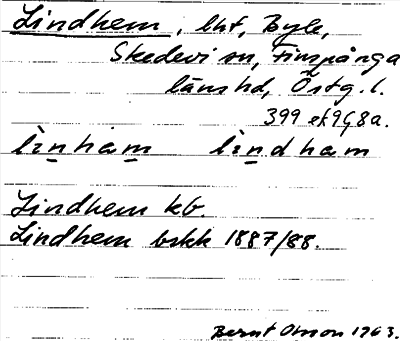 Lindhem, lht, Byle,
Skedevi sn, Finspånga
läns hd, Östg. l.
399 ek 9g8a.
lìnhàm lìndham
Lindhem kb.
Lindhem bskk 1887/88.
Bernt Olsson 1963.